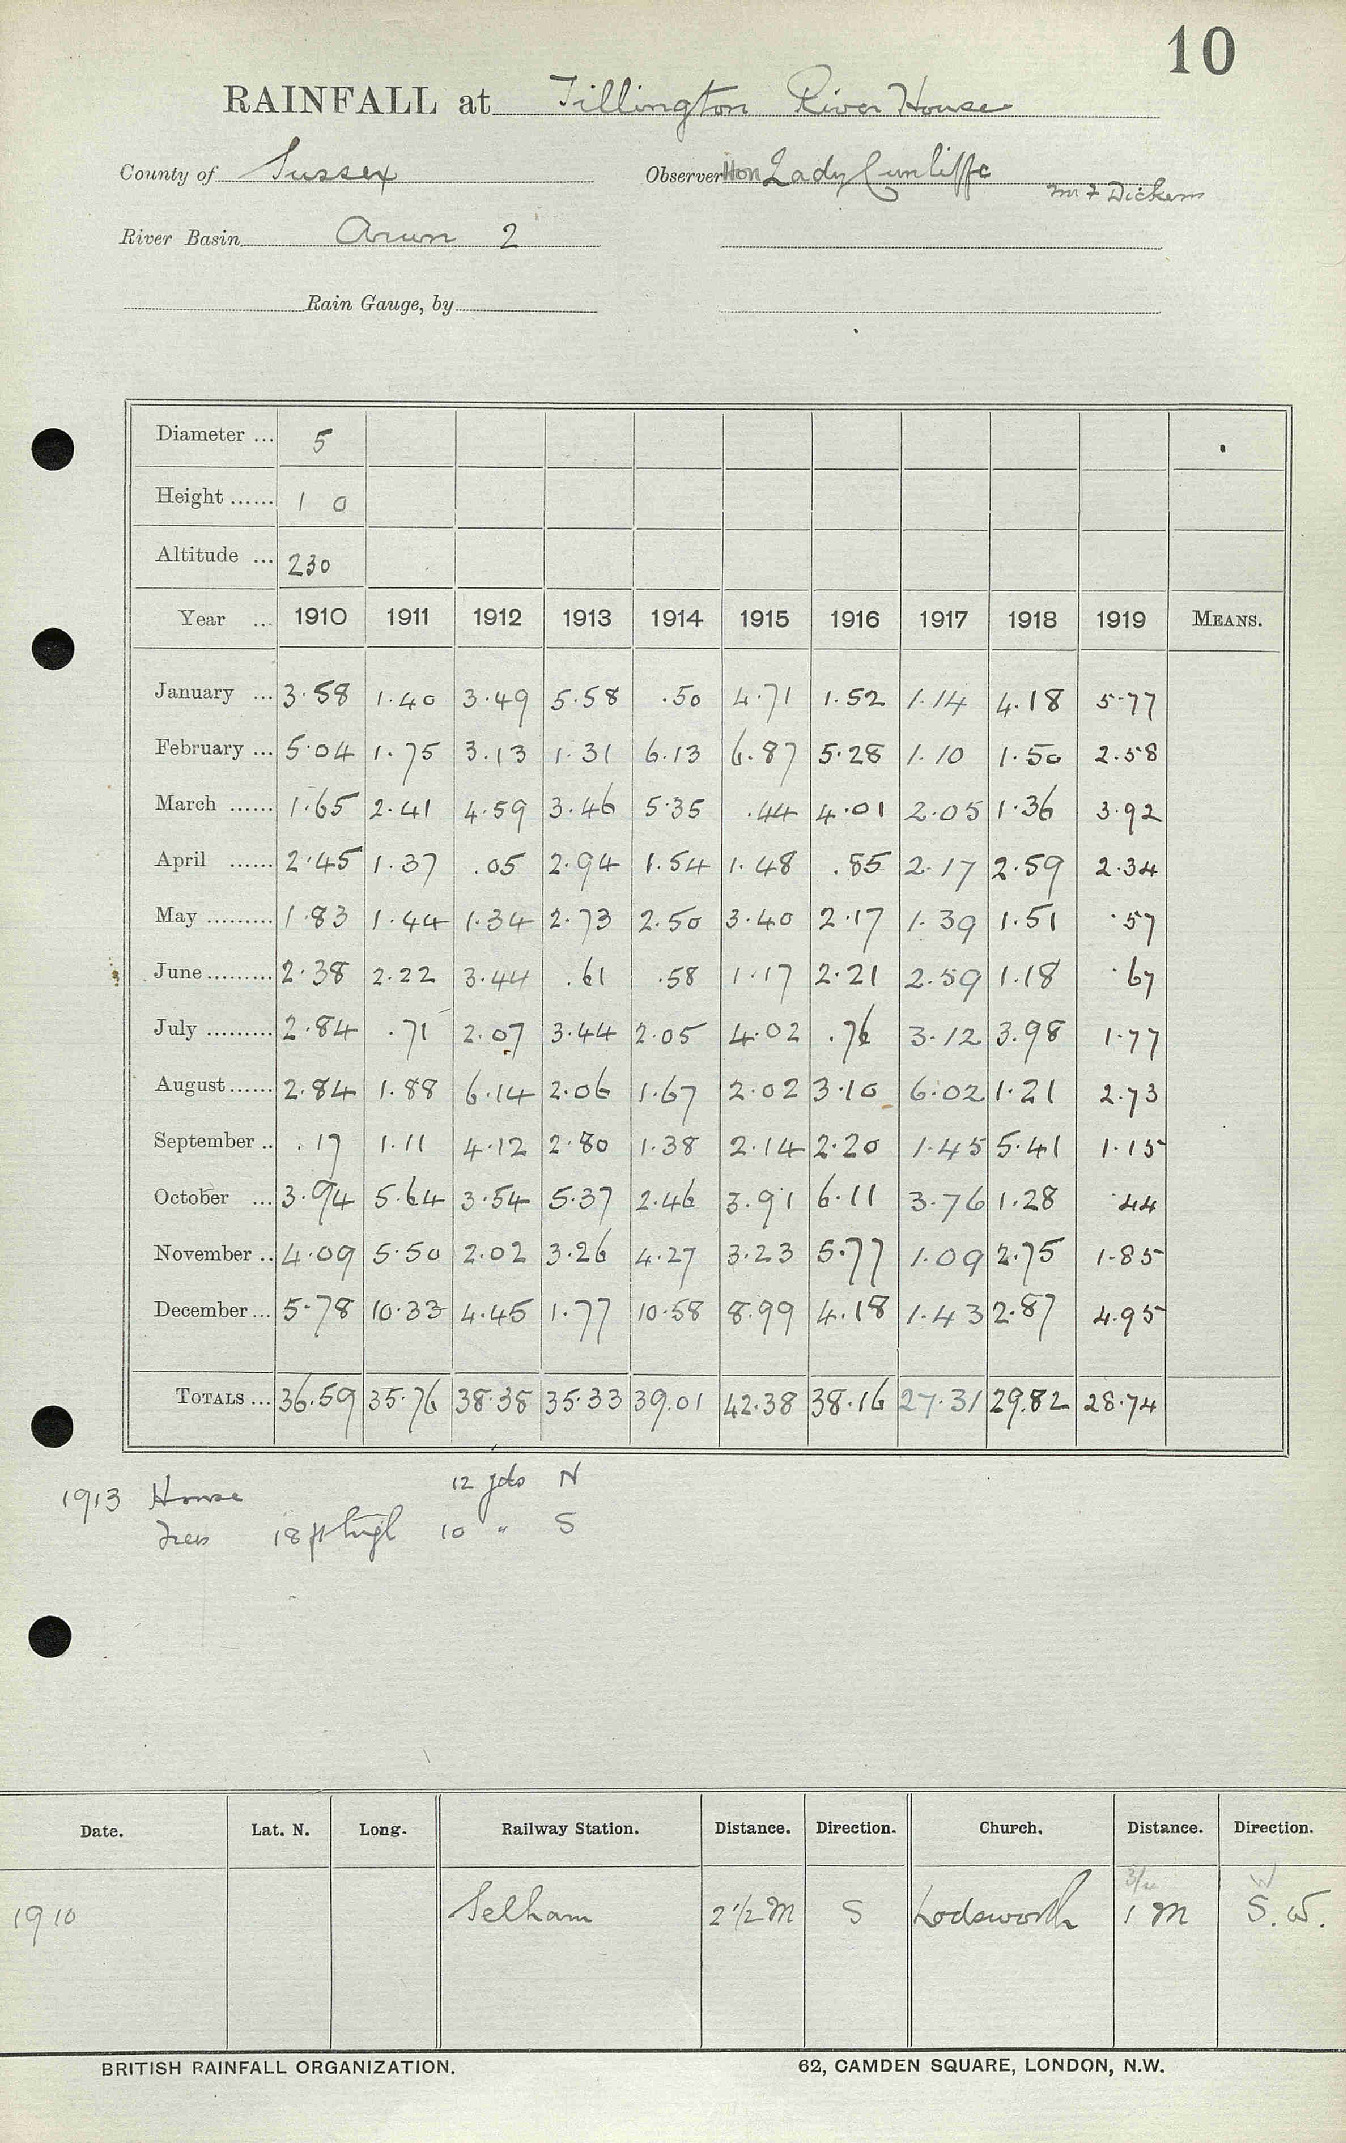 10
RAINFALL at Tillington River House
County of Sussex Observer Hon Lady Cunliffe
Mr F Dickens
River Basin Arun 2
Rain Gauge, by
Diameter ... 5
Height ...... 1 0
Altitude ... 230
Year ... 1910 1911 1912 1913 1914 1915 1916 1917 1918 1919 MEANS.
January ... 3.58 1.40 3.49 5.58 .50 4.71 1.52 1.14 4.18 5.77
February ... 5.04 1.75 3.13 1.31 6.13 6.87 5.28 1.10 1.50 2.58
March ...... 1.65 2.41 4.59 3.46 5.35 .44 4.01 2.05 1.36 3.92
April ...... 2.45 1.37 .05 2.94 1.54 1.48 .85 2.17 2.59 2.34
May ......... 1.83 1.44 1.34 2.73 2.50 3.40 2.17 1.39 1.51 .57
June ......... 2.38 2.22 3.44 .61 .58 1.17 2.21 2.59 1.18 .67
July ......... 2.84 .71 2.07 3.44 2.05 4.02 .76 3.12 3.98 1.77
August ...... 2.84 1.88 6.14 2.06 1.67 2.02 3.10 6.02 1.21 2.73
September .. .17 1.11 4.12 2.80 1.38 2.14 2.20 1.45 5.41 1.15
October ... 3.94 5.64 3.54 5.37 2.46 3.91 6.11 3.76 1.28 .44
November .. 4.09 5.50 2.02 3.26 4.27 3.23 5.77 1.09 2.75 1.85
December ... 5.78 10.33 4.45 1.77 10.58 8.99 4.18 1.43 2.87 4.95
TOTALS ... 36.59 35.76 38.38 35.33 39.01 42.38 38.16 27.31 29.82 28.74
1913 House 12 yds N
Trees 18 ft high 10 " S
Date. Lat. N. Long. Railway Station. Distance. Direction. Church. Distance. Direction.
3/4 W
1910 Selham 2 1/2 M S Lodsworth 1 M S.W.
BRITISH RAINFALL ORGANIZATION. 62, CAMDEN SQUARE, LONDON, N.W.